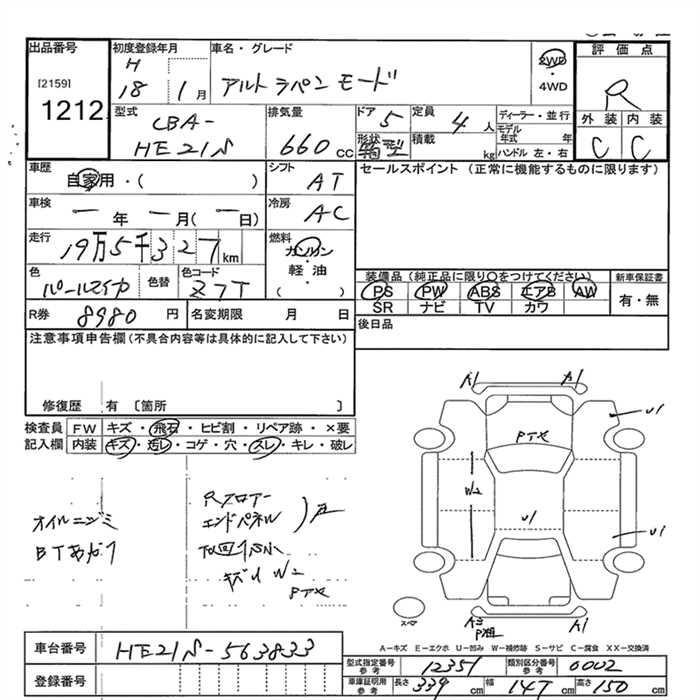 出品番号
[2159]
1212
初度登録年月
H
18 1月
車名・グレード
アルト ラパン モード
2WD
・
4WD
評価点
R
外装 内装
C C
型式
CBA-
HE21S
排気量
660 cc
ドア 5
形状
定員 4 人
積載 kg
ディーラー・並行
モデル年式 年
ハンドル 左・右
車歴
自家用・( )
シフト
AT
セールスポイント (正常に機能するものに限ります)
車検
一年 一月(一日)
冷房
AC
走行
19万5千327km
燃料
ガソリン
・
軽油
( )
色
パールマイカ
色替
色コード
Z7T
装備品 (純正品に限り○をつけてください)
PS PW ABS エアB AW
SR ナビ TV カワ
新車保証書
有・無
R券 8980 円
名変期限 月 日
後日品
注意事項申告欄 (不具合内容等は具体的に記入して下さい)
修復歴 有 〔箇所 〕
検査員
記入欄
FW キズ・飛石・ヒビ割・リペア跡・×要
内装 キズ・汚レ・コゲ・穴・スレ・キレ・破レ
オイルニジミ
BTあがり
Rフロアー
エンドパネル
下回り
W2
PTX
A1 A1
U1
PTX
W2
U1
U1
スペア
A1
A-キズ E-エクボ U-凹み W-補修跡 S-サビ C-腐食 XX-交換済
車台番号
HE21S-563833
登録番号
型式指定番号 参考
12351
類別区分番号 参考
0002
車庫証明用 参考
長さ 339 cm
幅 147 cm
高さ 150 cm